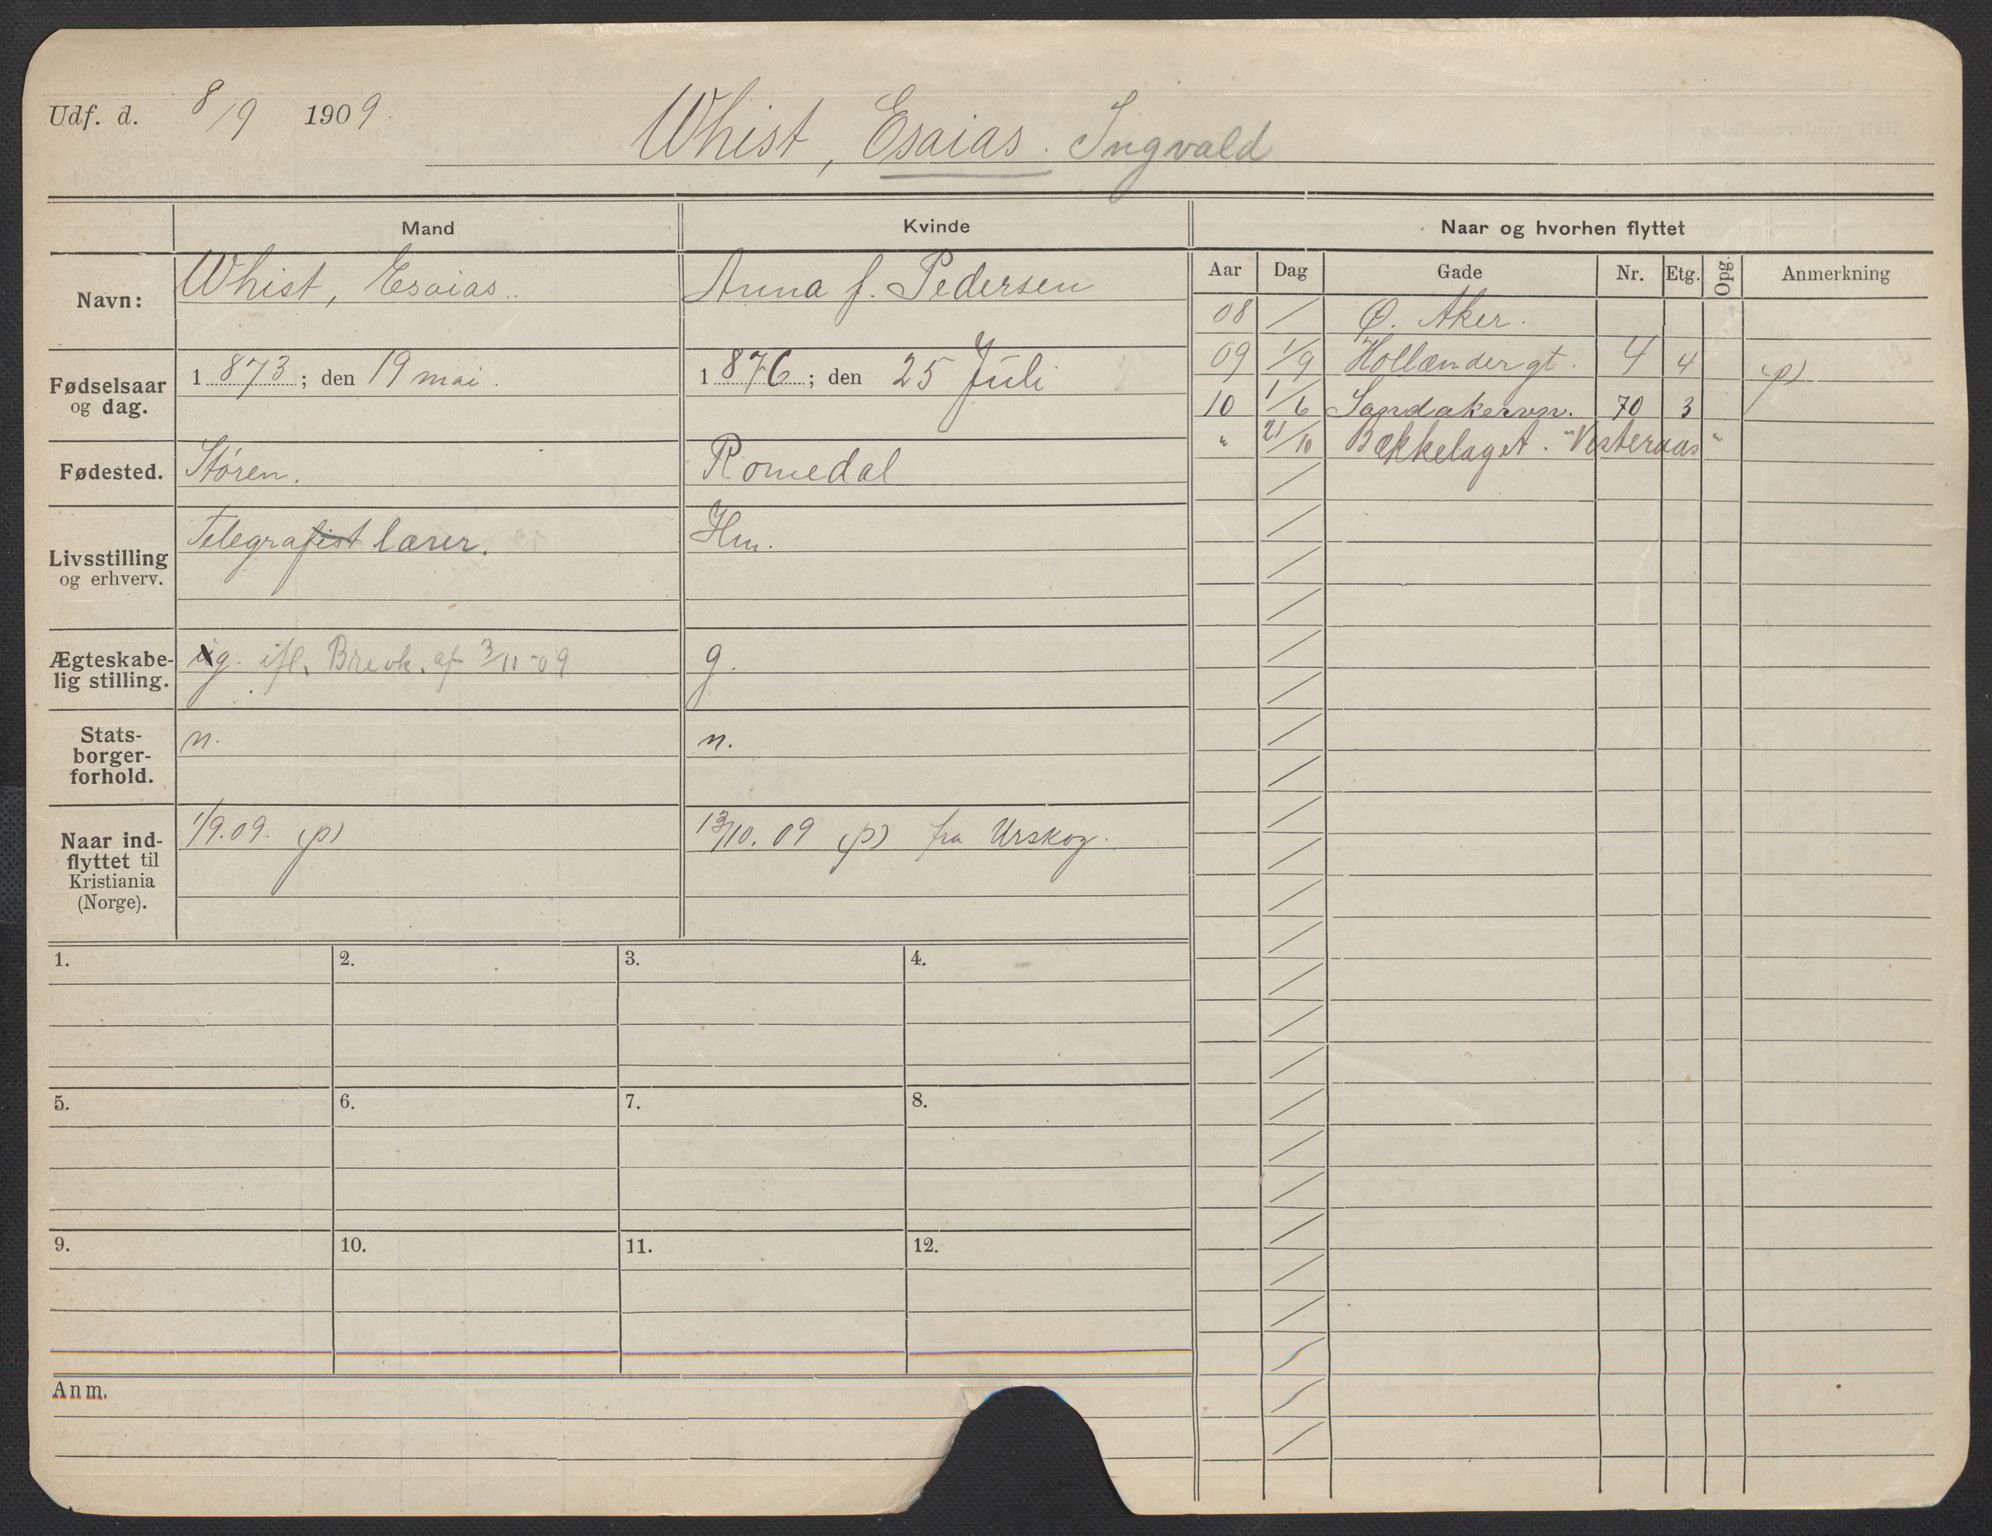 Udf. d. 8/9 1909.
Whist, Esaias. Ingvald
Mand
Kvinde
Naar og hvorhen flyttet
Navn:
Whist, Esaias.
Anna f. Pedersen
Aar Dag Gade Nr. Etg. Opg. Anmerkning
08 / Ø. Aker.
09 1/9 Hollændergt. 4 4 (p)
10 1/6 Sandakervn. 70 3
" 21/10 Bækkelaget. "Vesteraas"
Fødselsaar og dag.
1873; den 19 mai.
1876; den 25 Juli
Fødested.
Støren.
Romedal
Livsstilling og erhverv.
Telegrafist lærer.
Hm.
Ægteskabelig stilling.
g. ifl. Brevk. af 3/11-09
g.
Statsborgerforhold.
n.
n.
Naar indflyttet til Kristiania (Norge).
1/9.09. (p)
13/10.09 (p) fra Urskog.
1. 2. 3. 4.
5. 6. 7. 8.
9. 10. 11. 12.
Anm.